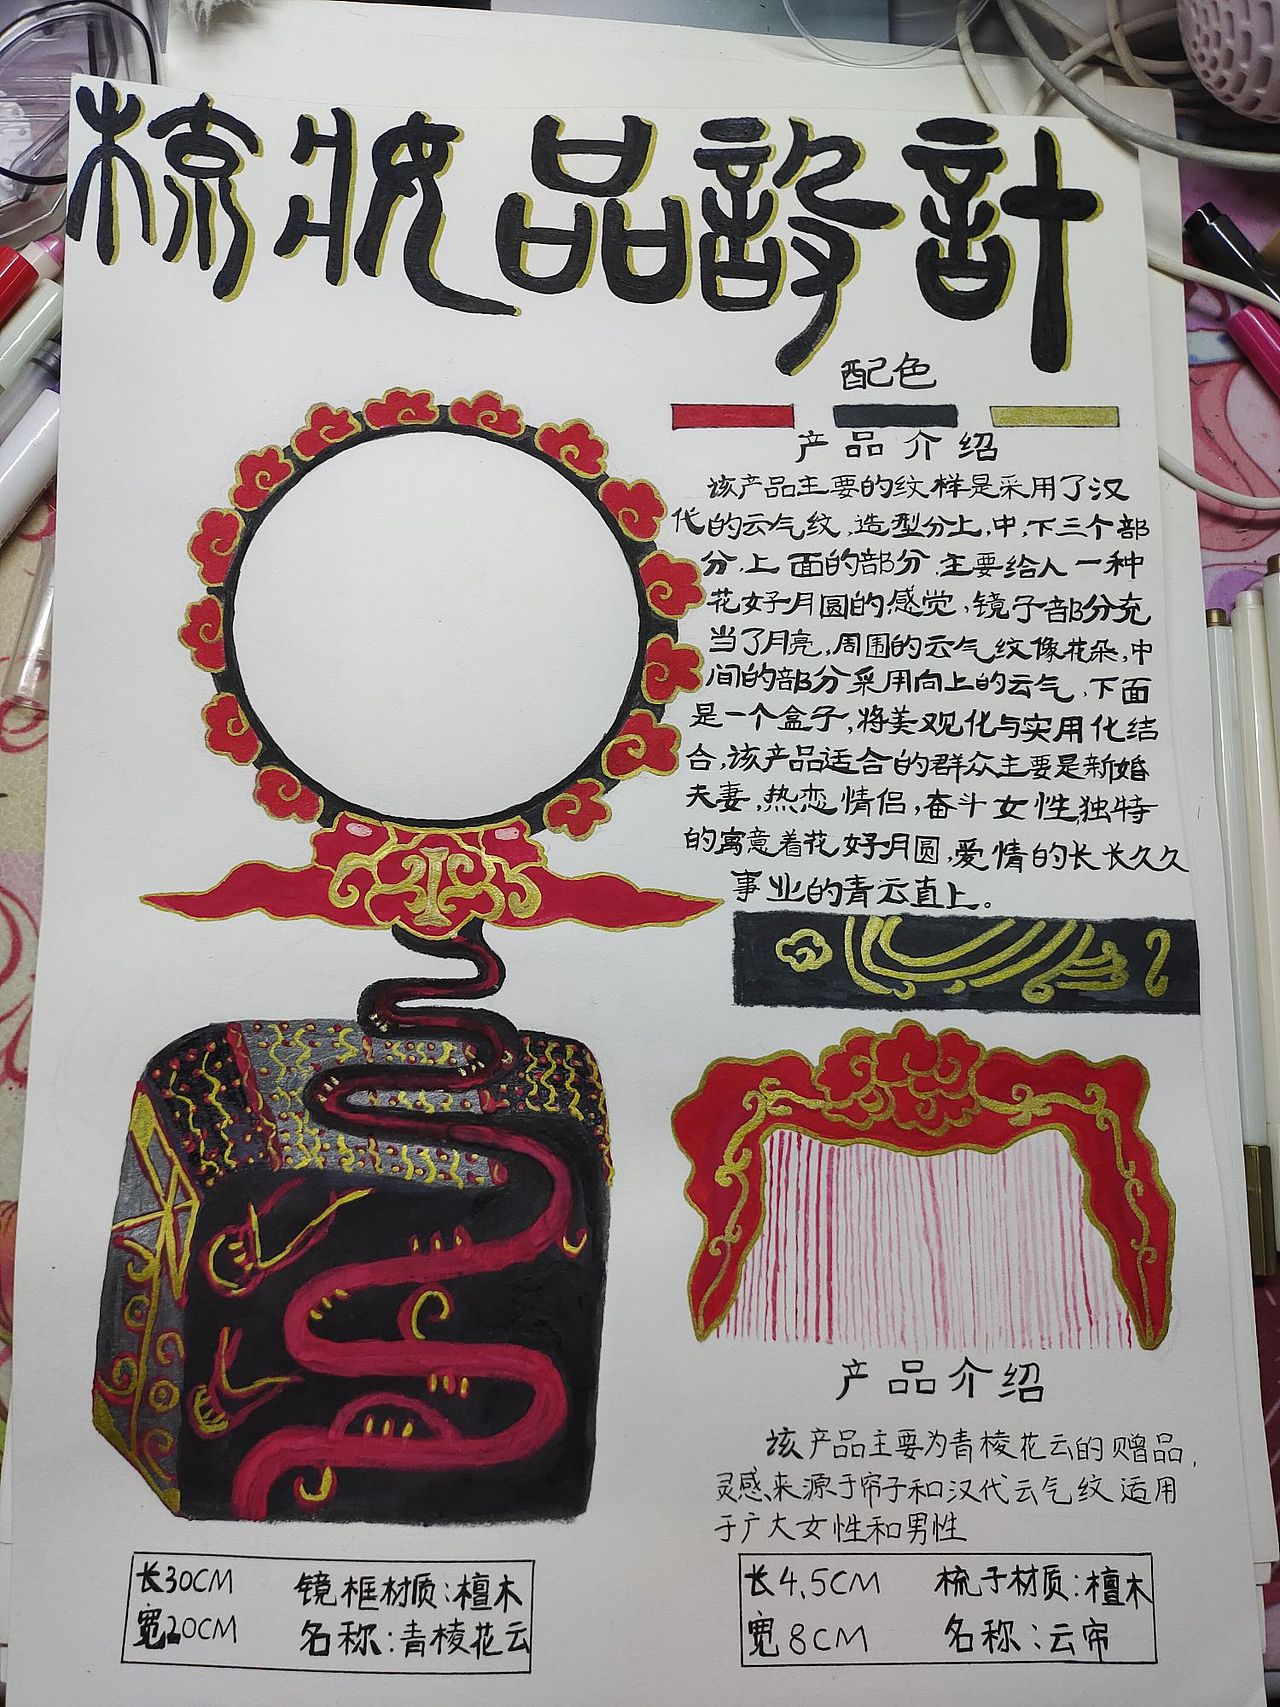 梳妝品設計
配色
产品介绍
该产品主要的纹样是采用了汉
代的云气纹,造型分上,中,下三个部
分,上面的部分,主要给人一种
花好月圆的感觉,镜子部分充
当了月亮,周围的云气纹像花朵,中
间的部分采用向上的云气,下面
是一个盒子,将美观化与实用化结
合,该产品适合的群众主要是新婚
夫妻,热恋情侣,奋斗女性,独特
的寓意着花好月圆,爱情的长长久久
事业的青云直上。
产品介绍
该产品主要为青棱花云的赠品,
灵感来源于帘子和汉代云气纹适用
于广大女性和男性
长30CM 镜框材质:檀木
宽20CM 名称:青棱花云
长4.5CM 梳子材质:檀木
宽8CM 名称:云帘